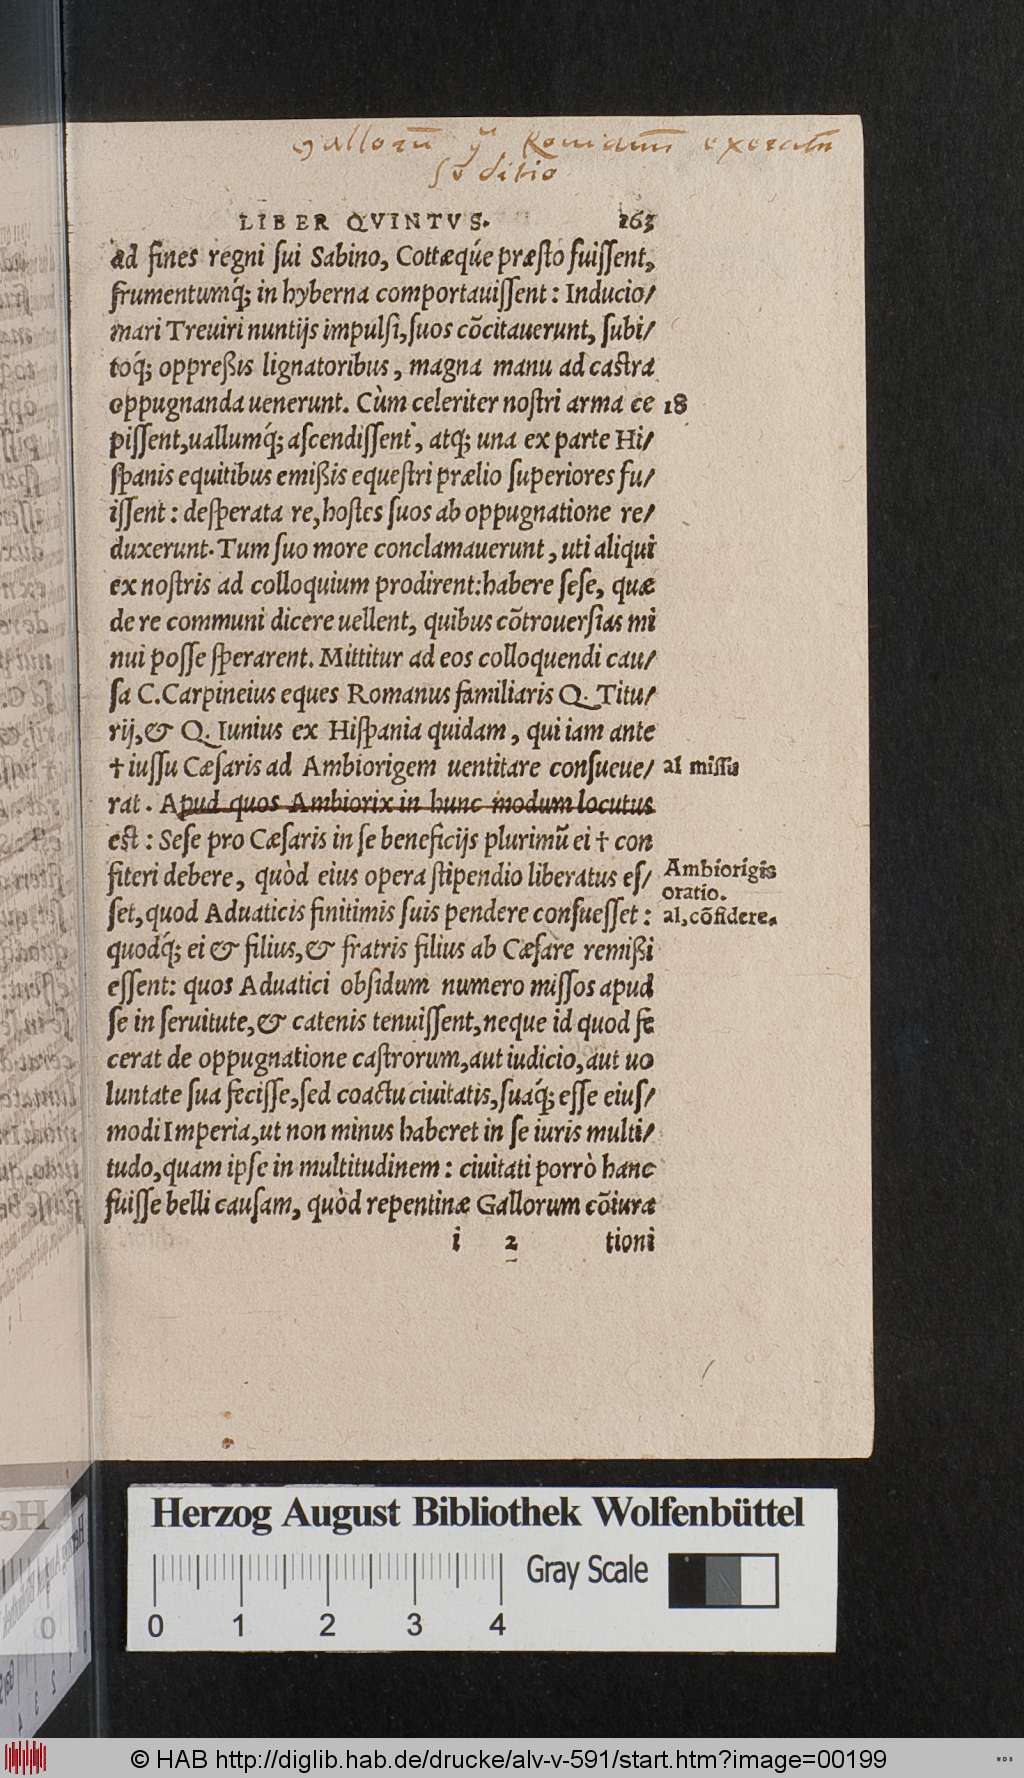 Gallorū Romanum exercitum
seditio
LIBER QVINTVS. 263
ad fines regni sui Sabino, Cottæqúe præsto fuissent,
frumentumq́; in hyberna comportauissent: Inducio/
mari Treuiri nuntijs impulsi, suos cõcitauerunt, subi/
toq́; oppreßis lignatoribus, magna manu ad castra
oppugnanda uenerunt. Cùm celeriter nostri arma ce 18
pissent, uallumq́; ascendissent, atq; una ex parte Hi/
spanis equitibus emißis equestri prælio superiores fu/
issent: desperata re, hostes suos ab oppugnatione re/
duxerunt. Tum suo more conclamauerunt, uti aliqui
ex nostris ad colloquium prodirent: habere sese, quæ
de re communi dicere uellent, quibus cõtrouersias mi
nui posse sperarent. Mittitur ad eos colloquendi cau/
sa C. Carpineius eques Romanus familiaris Q. Titu/
rij, & Q. Iunius ex Hispania quidam, qui iam ante
† iussu Cæsaris ad Ambiorigem uentitare consueue/ al missu
rat. Apud quos Ambiorix in hunc modum locutus
est: Sese pro Cæsaris in se beneficijs plurimũ ei † con
fiteri debere, quòd eius opera stipendio liberatus es/ Ambiorigis
oratio.
set, quod Aduaticis finitimis suis pendere consuesset: al, cõfidere.
quodq́; ei & filius, & fratris filius ab Cæsare remißi
essent: quos Aduatici obsidum numero missos apud
se in seruitute, & catenis tenuissent, neque id quod fe
cerat de oppugnatione castrorum, aut iudicio, aut uo
luntate sua fecisse, sed coactu ciuitatis, suaq́; esse eius/
modi Imperia, ut non minus haberet in se iuris multi/
tudo, quam ipse in multitudinem: ciuitati porrò hanc
fuisse belli causam, quòd repentinæ Gallorum cõiura
i 2 tioni
Herzog August Bibliothek Wolfenbüttel
Gray Scale
0 1 2 3 4
© HAB http://diglib.hab.de/drucke/alv-v-591/start.htm?image=00199